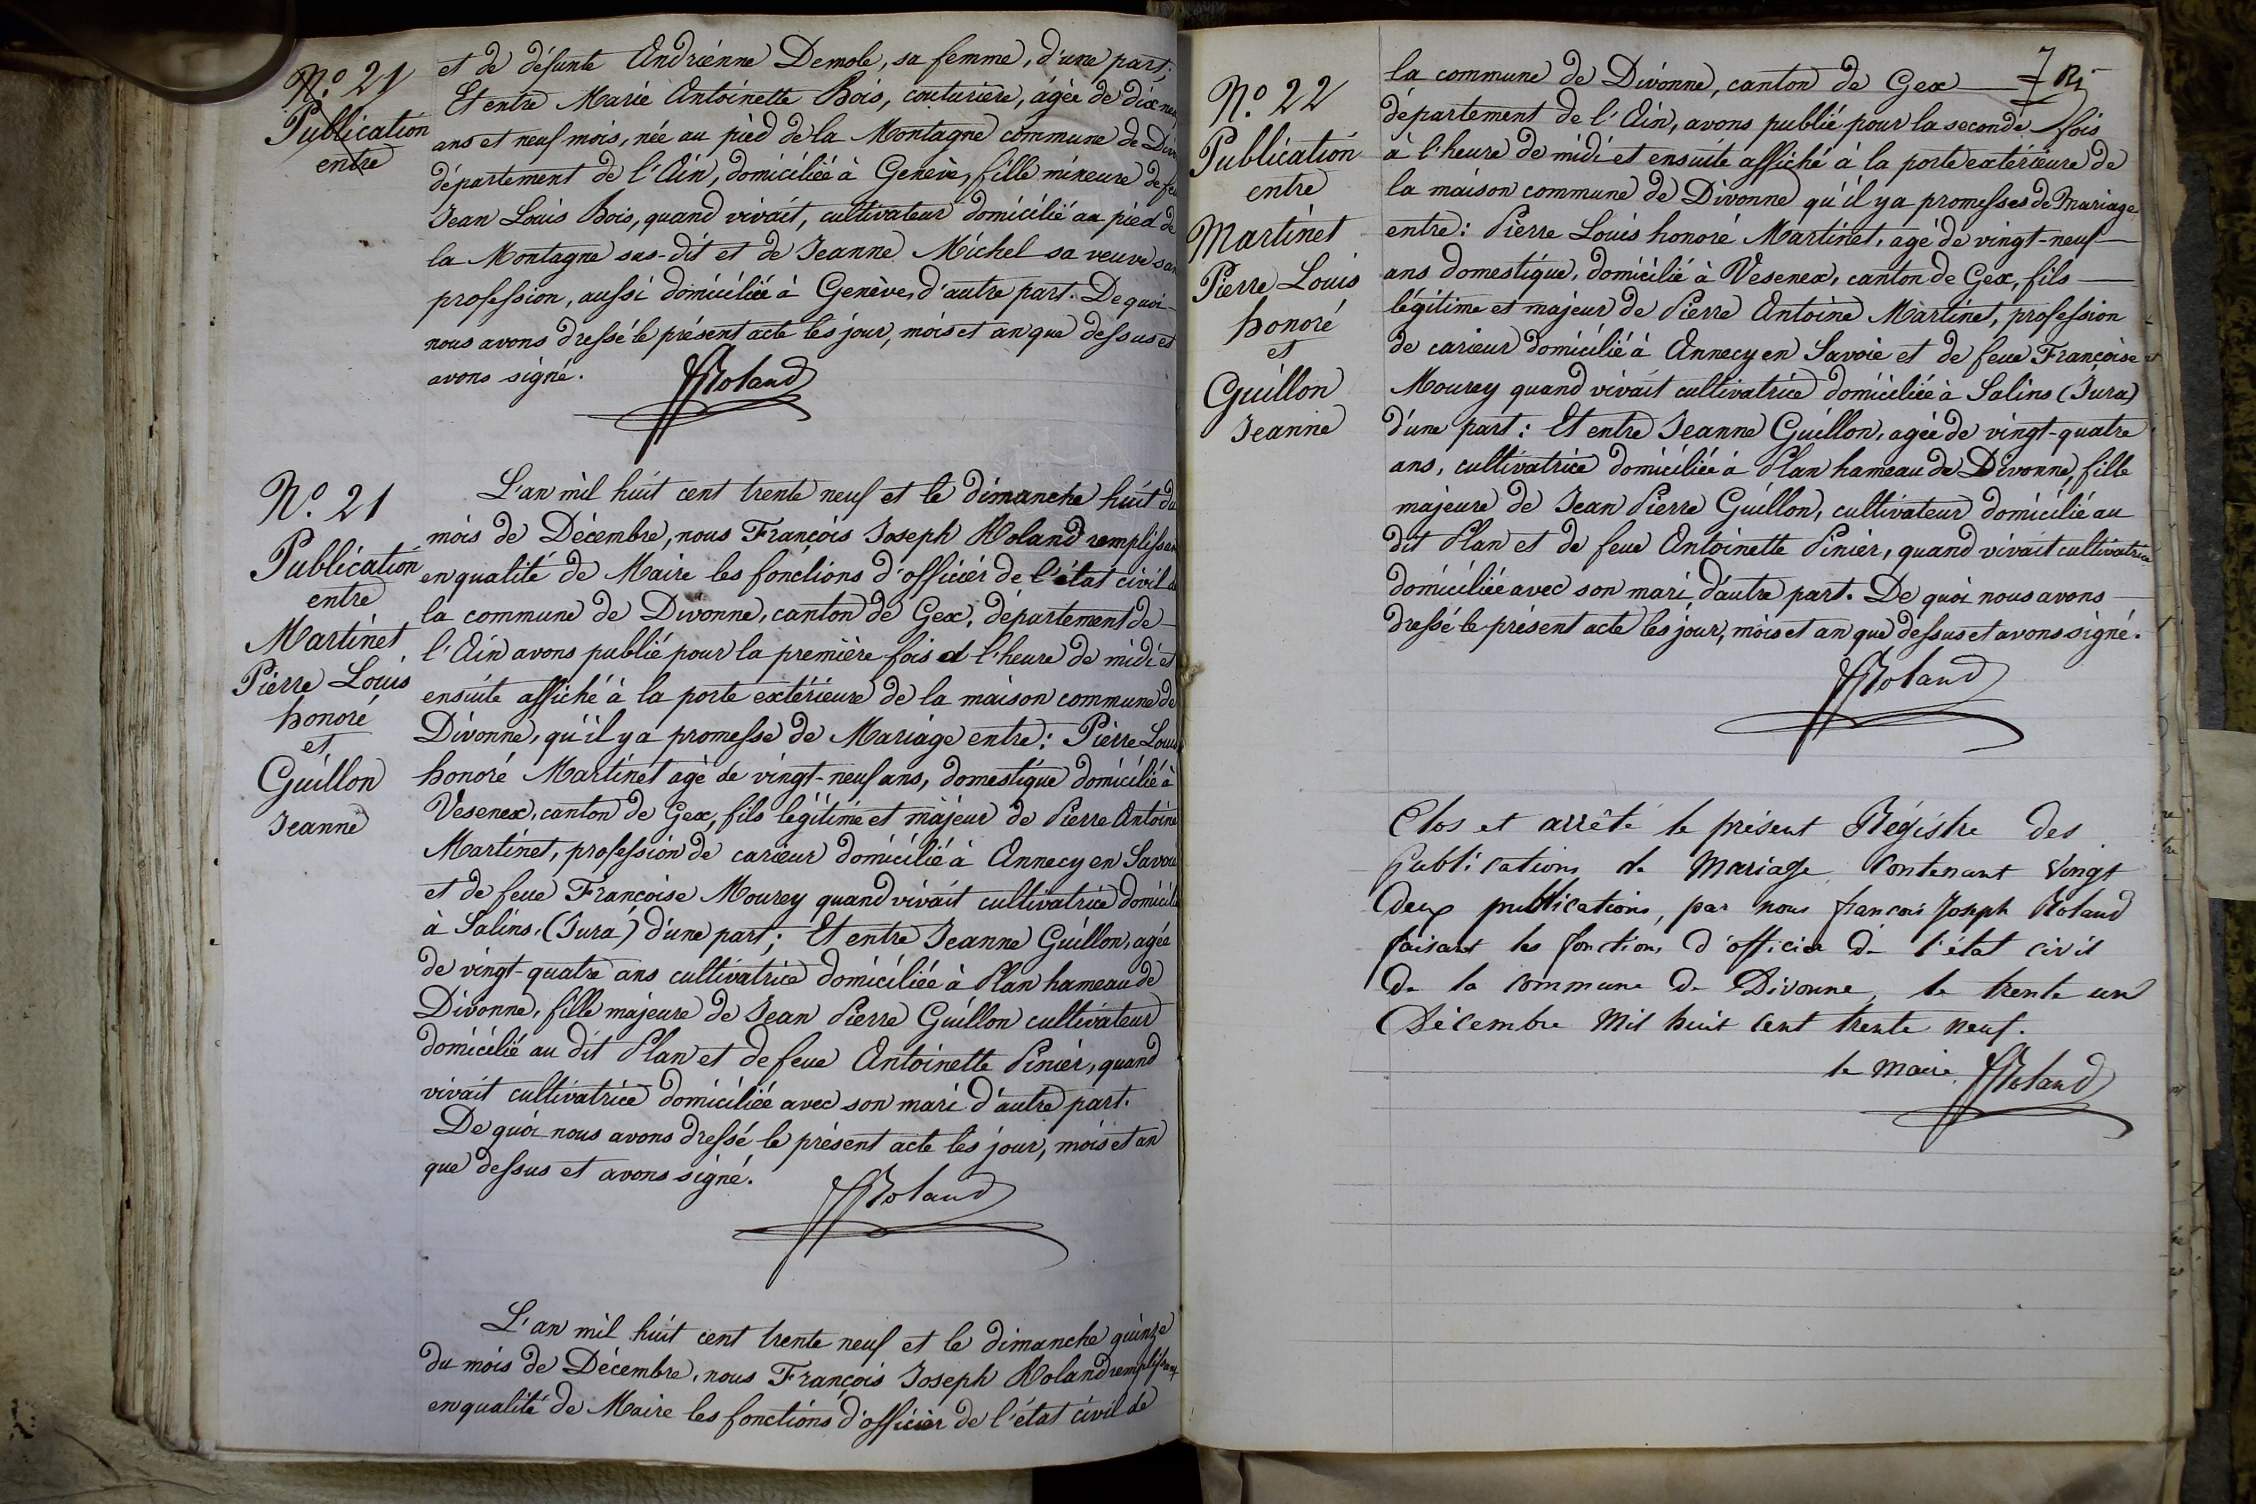 N.º 21
Publication
entre
et de défunte Andrienne Demole, sa femme, d'une part;
Et entre Marie Antoinette Bois, couturière, âgée de dix neuf
ans et neuf mois, née au pied de la Montagne commune de Divo
département de l'Ain, domiciliée à Genève, fille mineure de feu
Jean Louis Bois, quand vivait, cultivateur domicilié au pied de
la Montagne sus-dit et de Jeanne Michel sa veuve san
profession, aussi domiciliée à Genève, d'autre part. De quoi
nous avons dressé le présent acte les jour, mois et an que dessus et
avons signé.
FJRoland
N.º 21
Publication
entre
Martinet
Pierre Louis
honoré
et
Guillon
Jeanne
L'an mil huit cent trente neuf et le dimanche huit du
mois de Décembre, nous François Joseph Roland remplissan
en qualité de Maire les fonctions d'officier de l'état civil de
la commune de Divonne, canton de Gex, département de
l'Ain avons publié pour la première fois à l'heure de midi et
ensuite affiché à la porte extérieure de la maison commune de
Divonne, qu'il y a promesse de Mariage entre: Pierre Louis
honoré Martinet agé de vingt-neuf ans, domestique domicilié à
Vesenex, canton de Gex, fils légitime et majeur de Pierre Antoine
Martinet, profession de carieur domicilié à Annecy en Savoie
et de feue Françoise Mourey quand vivait cultivatrice domicilié
à Salins, (Jura) d'une part; Et entre Jeanne Guillon, agée
de vingt-quatre ans cultivatrice domiciliée à Plan hameau de
Divonne, fille majeure de Jean Pierre Guillon cultivateur
domicilié au dit Plan et de feue Antoinette Pinier, quand
vivait cultivatrice domiciliée avec son mari d'autre part.
De quoi nous avons dressé le présent acte les jour, mois et an
que dessus et avons signé.
FJRoland
L'an mil huit cent trente neuf et le dimanche quinze
du mois de Décembre, nous François Joseph Roland remplissant
en qualité de Maire les fonctions d'officier de l'état civil de
7
N.º 22
Publication
entre
Martinet
Pierre Louis
honoré
et
Guillon
Jeanne
la commune de Divonne, canton de Gex
département de l'Ain, avons publié pour la seconde fois
à l'heure de midi et ensuite affiché à la porte extérieure de
la maison commune de Divonne qu'il y a promesses de Mariage
entre: Pierre Louis honoré Martinet, agé de vingt-neuf
ans domestique, domicilié à Vesenex, canton de Gex, fils
légitime et majeur de Pierre Antoine Martinet, profession
de carieur domicilié à Annecy en Savoie et de feue Françoise
Mourey quand vivait cultivatrice domiciliée à Salins (Jura)
d'une part: Et entre Jeanne Guillon, agée de vingt-quatre
ans, cultivatrice domiciliée à Plan hameau de Divonne, fille
majeure de Jean Pierre Guillon, cultivateur domicilié au
dit Plan et de feue Antoinette Pinier, quand vivait cultivatrice
domiciliée avec son mari d'autre part. De quoi nous avons
dressé le présent acte les jour, mois et an que dessus et avons signé.
FJRoland
Clos et arrêté le présent Régistre des
Publications de Mariage Contenant Vingt
Deux publications, par nous françois Joseph Roland
faisant les fonctions d'officier de l'état civil
De la Commune de Divonne, le trente un
Décembre Mil huit Cent trente neuf.
le Maire FJRoland